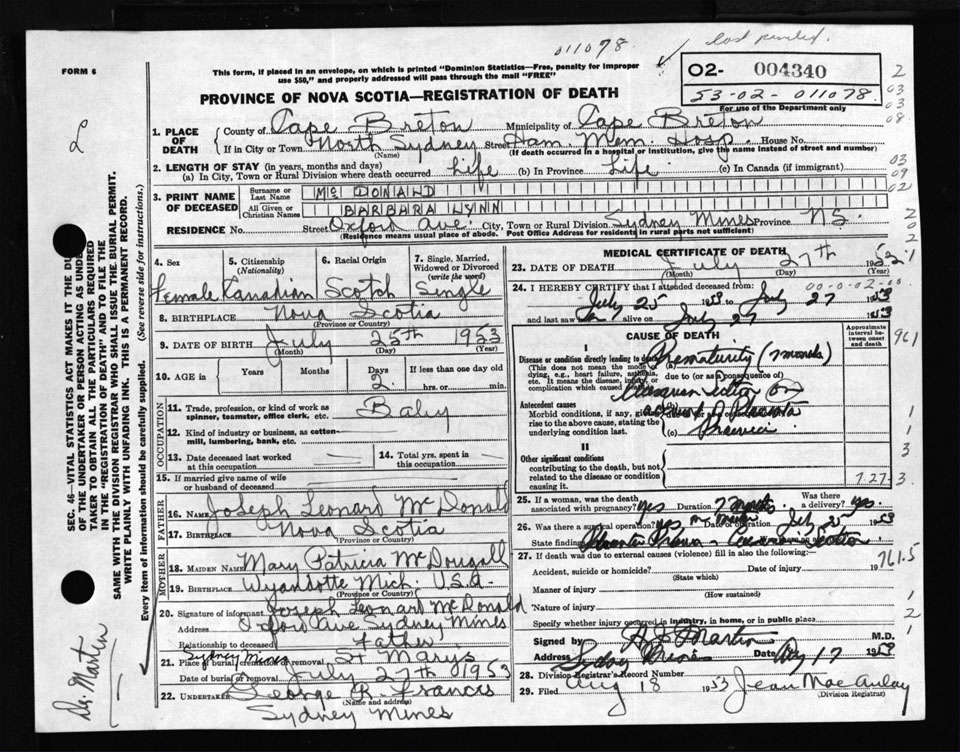 011078
FORM 6
This form, if placed in an envelope, on which is printed "Dominion Statistics—Free, penalty for improper
use $50," and properly addressed will pass through the mail "FREE"
02- 004340
53-02-011078
For use of the Department only
PROVINCE OF NOVA SCOTIA—REGISTRATION OF DEATH
1. PLACE OF DEATH County of Cape Breton Municipality of Cape Breton
If in City or Town North Sydney Street Ham. Mem. Hosp. House No.
(Name) (If death occurred in a hospital or institution, give the name instead of street and number)
2. LENGTH OF STAY (in years, months and days)
(a) In City, Town or Rural Division where death occurred Life (b) In Province Life (c) In Canada (if immigrant)
3. PRINT NAME OF DECEASED Surname or Last Name Mc DONALD
All Given or Christian Names BARBARA LYNN
RESIDENCE No. Street Oxford Ave. City, Town or Rural Division Sydney Mines Province N.S.
(Residence means usual place of abode. Post Office Address for residents in rural parts not sufficient)
4. Sex Female
5. Citizenship (Nationality) Canadian
6. Racial Origin Scotch
7. Single, Married, Widowed or Divorced (write the word) Single
8. BIRTHPLACE Nova Scotia
(Province or Country)
9. DATE OF BIRTH July 25th 1953
(Month) (Day) (Year)
10. AGE in Years Months Days 2 If less than one day old hrs. or min.
OCCUPATION
11. Trade, profession, or kind of work as spinner, teamster, office clerk, etc. Baby
12. Kind of industry or business, as cotton-mill, lumbering, bank, etc.
13. Date deceased last worked at this occupation
14. Total yrs. spent in this occupation
15. If married give name of wife or husband of deceased
FATHER
16. Name Joseph Leonard McDonald
17. Birthplace Nova Scotia
(Province or Country)
MOTHER
18. MAIDEN NAME Mary Patricia McDougall
19. BIRTHPLACE Wyandotte Mich. U.S.A.
(Province or Country)
20. Signature of informant Joseph Leonard McDonald
Address Oxford Ave Sydney Mines
Relationship to deceased Father
Sydney Mines
21. Place of burial, cremation or removal St Mary's
Date of burial or removal July 27th 1953
22. UNDERTAKER George R. Francis
(Name and address)
Sydney Mines
MEDICAL CERTIFICATE OF DEATH
23. DATE OF DEATH July 27th
(Month) (Day) (Year)
24. I HEREBY CERTIFY that I attended deceased from:
July 25 1953 to July 27 1953
and last saw alive on July 27 1953
CAUSE OF DEATH
Approximate interval between onset and death
I
Disease or condition directly leading to death
(This does not mean the mode of dying, e.g., heart failure, asthenia, etc. It means the disease, injury, or complication which caused death)
(a) Prematurity (7 months)
due to (or as a consequence of)
Antecedent causes
Morbid conditions, if any, giving rise to the above cause, stating the underlying condition last.
due to (or as a consequence of) Placenta
(c) Praevia
II
Other significant conditions
contributing to the death, but not related to the disease or condition causing it.
961
7-27-3
25. If a woman, was the death associated with pregnancy? yes Duration 7 months Was there a delivery? yes
26. Was there a surgical operation? yes Date of operation July 25 1953
State findings Placenta Praevia -
27. If death was due to external causes (violence) fill in also the following:
761.5
Accident, suicide or homicide? Date of injury 19
(State which)
Manner of injury
(How sustained)
Nature of injury
Specify whether injury occurred in industry, in home, or in public place
Signed by Martin M.D.
Address Sydney Mines Date Aug 17 1953
28. Division Registrar's Record Number
29. Filed Aug 18 1953 Jean MacAulay
(Division Registrar)
SEC. 46—VITAL STATISTICS ACT MAKES IT THE DUTY
OF THE UNDERTAKER OR PERSON ACTING AS UNDERTAKER
TO OBTAIN ALL THE PARTICULARS REQUIRED
IN THE "REGISTRATION OF DEATH" AND TO FILE THE
SAME WITH THE DIVISION REGISTRAR WHO SHALL ISSUE THE BURIAL PERMIT.
WRITE PLAINLY WITH UNFADING INK. THIS IS A PERMANENT RECORD.
Every item of information should be carefully supplied. (See reverse side for instructions.)
Dr. Martin